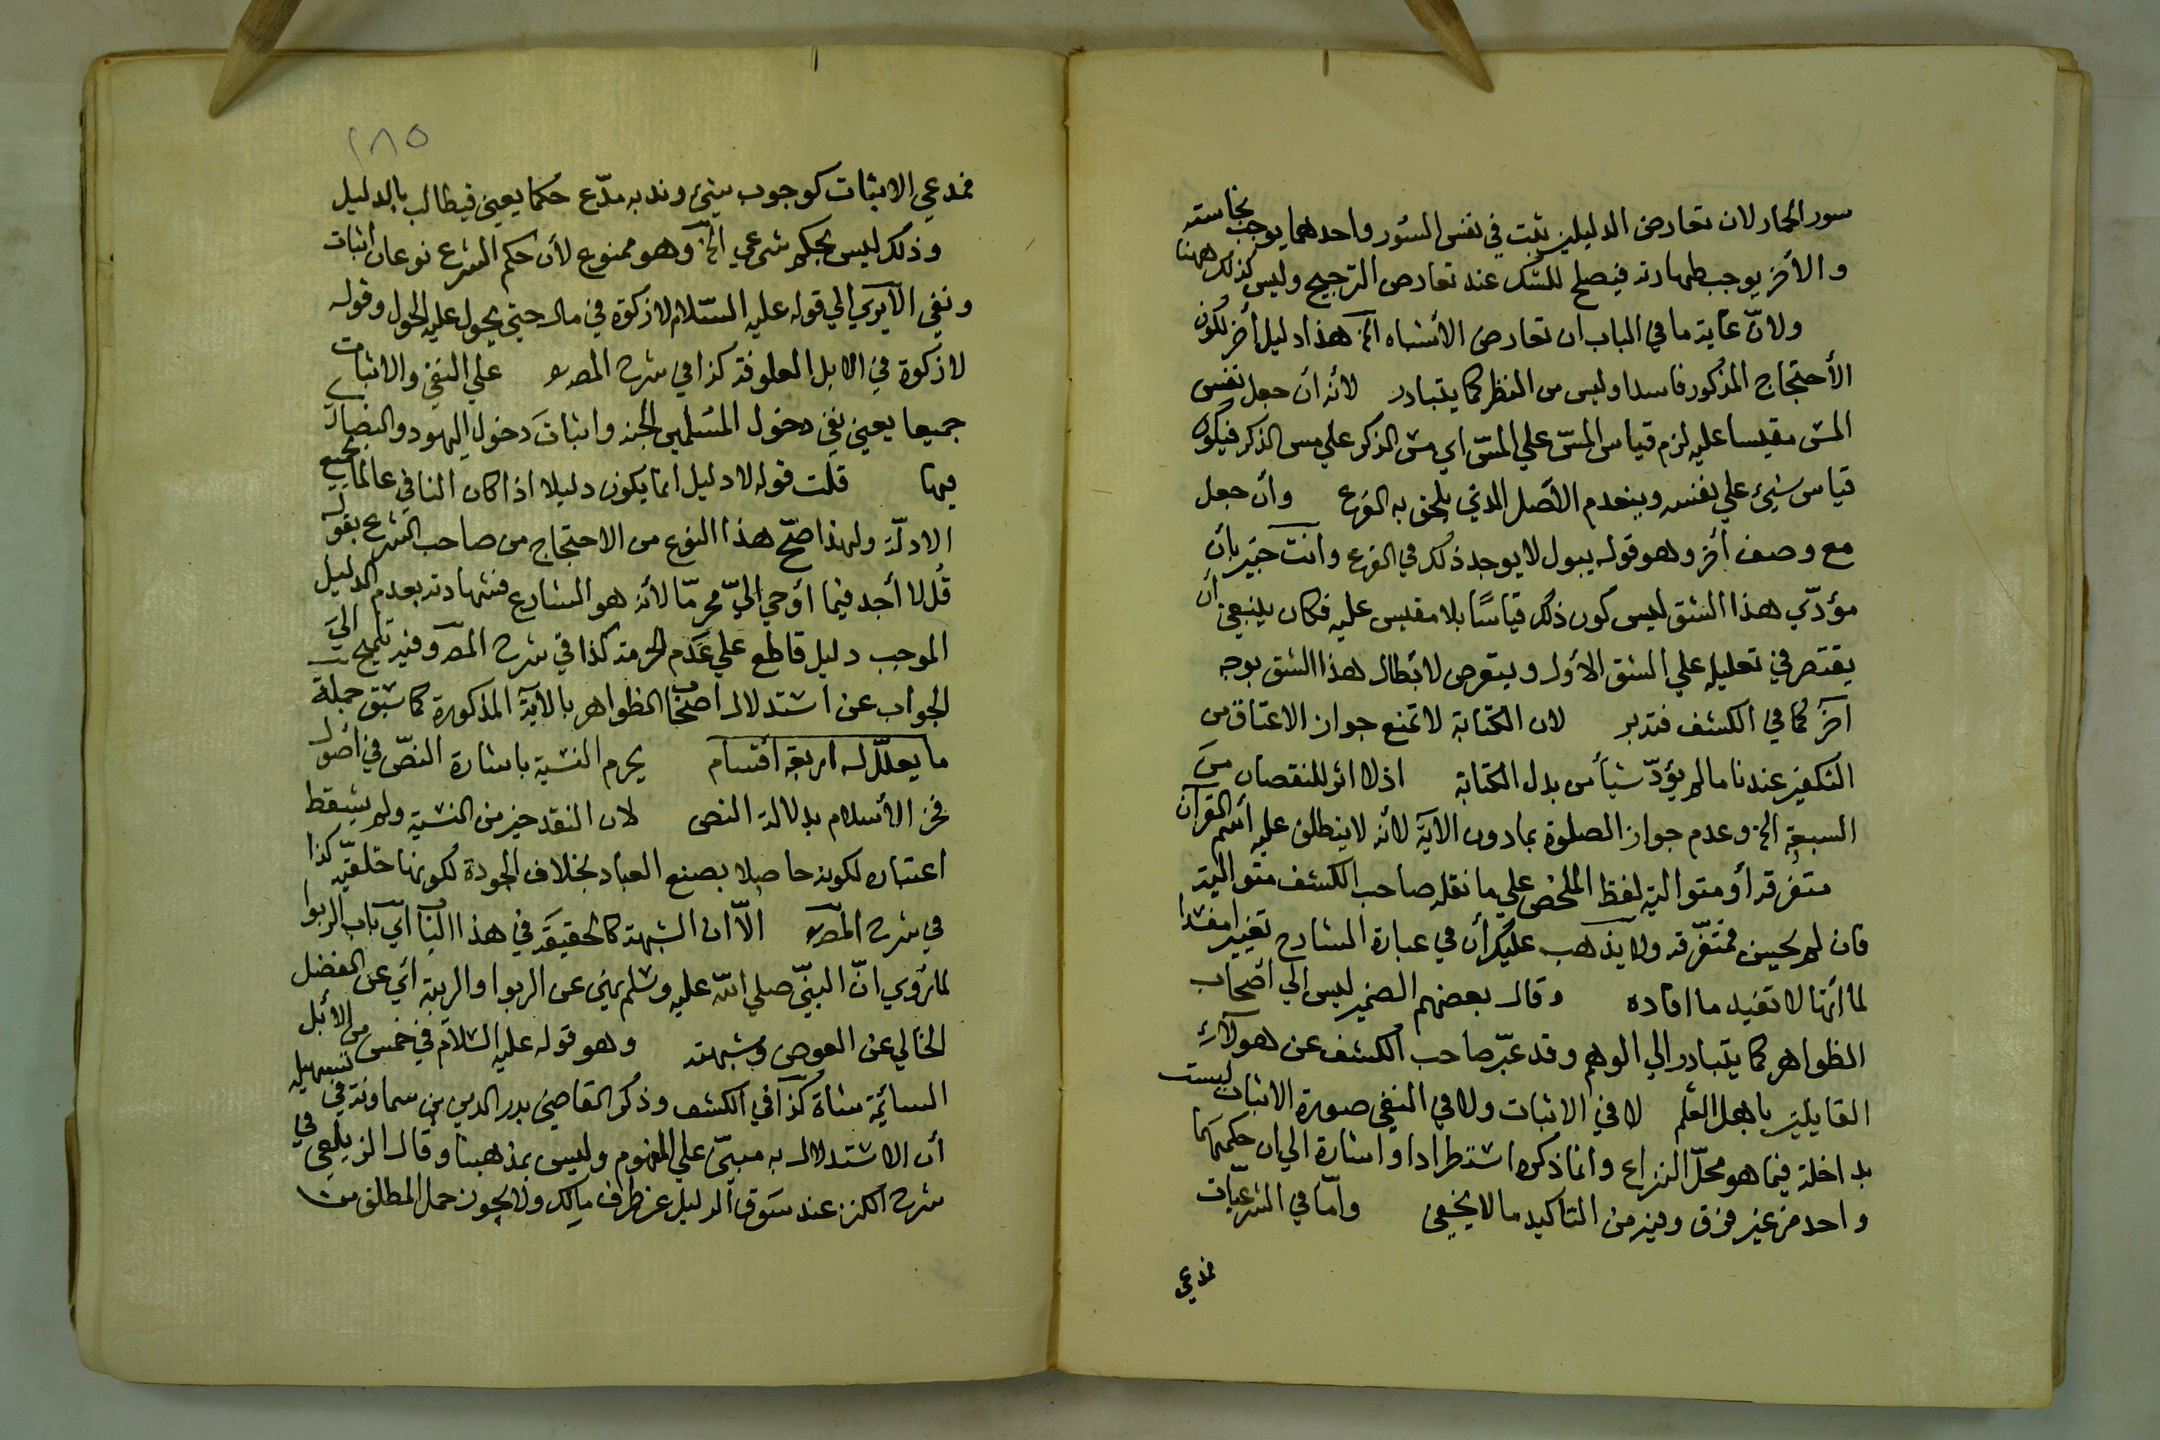 سور الحمار لان تعارض الدليلين ثبت في نفس السئور واحدهما يوجب نجاسته
والأخر يوجب طهارته فيصلح للشك عند تعارض الترجيح وليس كذلك ههنا
ولانّ غاية ما في الباب ان تعارض الأشباه الخ هذا دليل أخر لكون
الأحتجاج المذكور فاسدا وليس من النظر كما يتبادر لأنه ان جعل نفس
المسّ مقيسا عليه لزم قياس المسّ علي المسّ اي مس الذكر علي مس الذكر فيكون
قياس شئ علي نفسه وينعدم الأصل الذي يلحق به الفرع وأن جعل
مع وصف أخر وهو قوله يبول لا يوجد ذلك في الفرع وانت خبير بان
مؤدّي هذا الشق ليس كون ذلك قياسًا بلا مقيس عليه فكان ينبغي أن
يقتصر في تعليله علي الشق الأول ويتعرض لابطال هذا الشق بوجه
آخر كما في الكشف فتدبر لان الكتابة لا تمنع جواز الاعتاق من
التكفير عندنا ما لم يؤدّ شيأ من بدل الكتابة اذ لا اثر للنقصان من
السبعة الخ وعدم جواز الصلوة بما دون الآية لأنه لا ينطلق عليه أسم القرآن
متفرقة أو متوالية لفظ الملخص علي ما نقله صاحب الكشف متوالية
فان لم يحسن فمتفرّقة ولا يذهب عليك أن في عبارة الشارح تغييرا مفسدا
لما أنها لا تفيد ما افاده وقال بعضهم الضمير ليس الي أصحاب
الظواهر كما يتبادر الي الوهم وقد عبّر صاحب الكشف عن هولآء
القايلين باهل العلم لا في الاثبات ولا في النفي صورة الاثبات ليست
بداخلة فيما هو محلّ النزاع وانما ذكره استطرادا واشارة الي ان حكمهما
واحد من غير فرق وفيه من التاكيد ما لا يخفي وأمّا في الشرعيّات
فمدعي
١٨٥
فمدعي الاثبات كوجوب شئ وندبه مدّع حكما يعني فيطالب بالدليل
وذلك ليس بحكم شرعي الخ وهو ممنوع لأن حكم الشرع نوعان اثبات
ونفي الا يري الي قوله عليه السّلام لا زكوة في مال حتي يحول عليه الحول وقوله
لا زكوة في الابل العلوفة كذا في شرح المصـ علي النفي والاثبات
جميعا يعني نفي دخول المسلمين الجنة واثبات دخول اليهود والنصار
فيها قلت قوله لا دليل انما يكون دليلا اذا كان النافي عالما بجميع
الادلّة ولهذا صحّ هذا النوع من الاحتجاج من صاحب الشرع بقوله
قُل لا أجد فيما أوحي اليّ محرمّا لأنه هو الشارع فشهادته بعدم الدليل
الموجب دليل قاطع علي عَدَم الحرمة كذا في شرح المصـ وفيه تلميح الي
الجواب عن استدلال اصحاب الظواهر بالآية المذكورة كما سبق جملة
ما يعلّل له اربعة أقسام يحرم النسية باشارة النصّ في اصول
فخر الأسلام بدلالة النص لان النقد خير من النسية ولم يسقط
اعتباره لكونه حاصلا بصنع العباد بخلاف الجودة لكونها خلقيّة كذا
في شرح المصـ الّا ان الشبهة كالحقيقة في هذا الباب اي باب الربوا
لما رُوي انّ النبيّ صلي الله عليه وسلم نهي عن الربوا والريبة أي عن الفضل
الخالي عن العوض وشبهته وهو قوله عليه السلام في خمس من الأبل
السائمة شاة كذا في الكشف وذكر القاضي بدر الدين بن سماونة في تسهيله
أن الاستدلال به مبنيّ علي المفهوم وليس بمذهبنا وقال الزيلعي في
شرح الكنز عند سَوق الدليل عن طرف مالك ولا يجوز حمل المطلق من